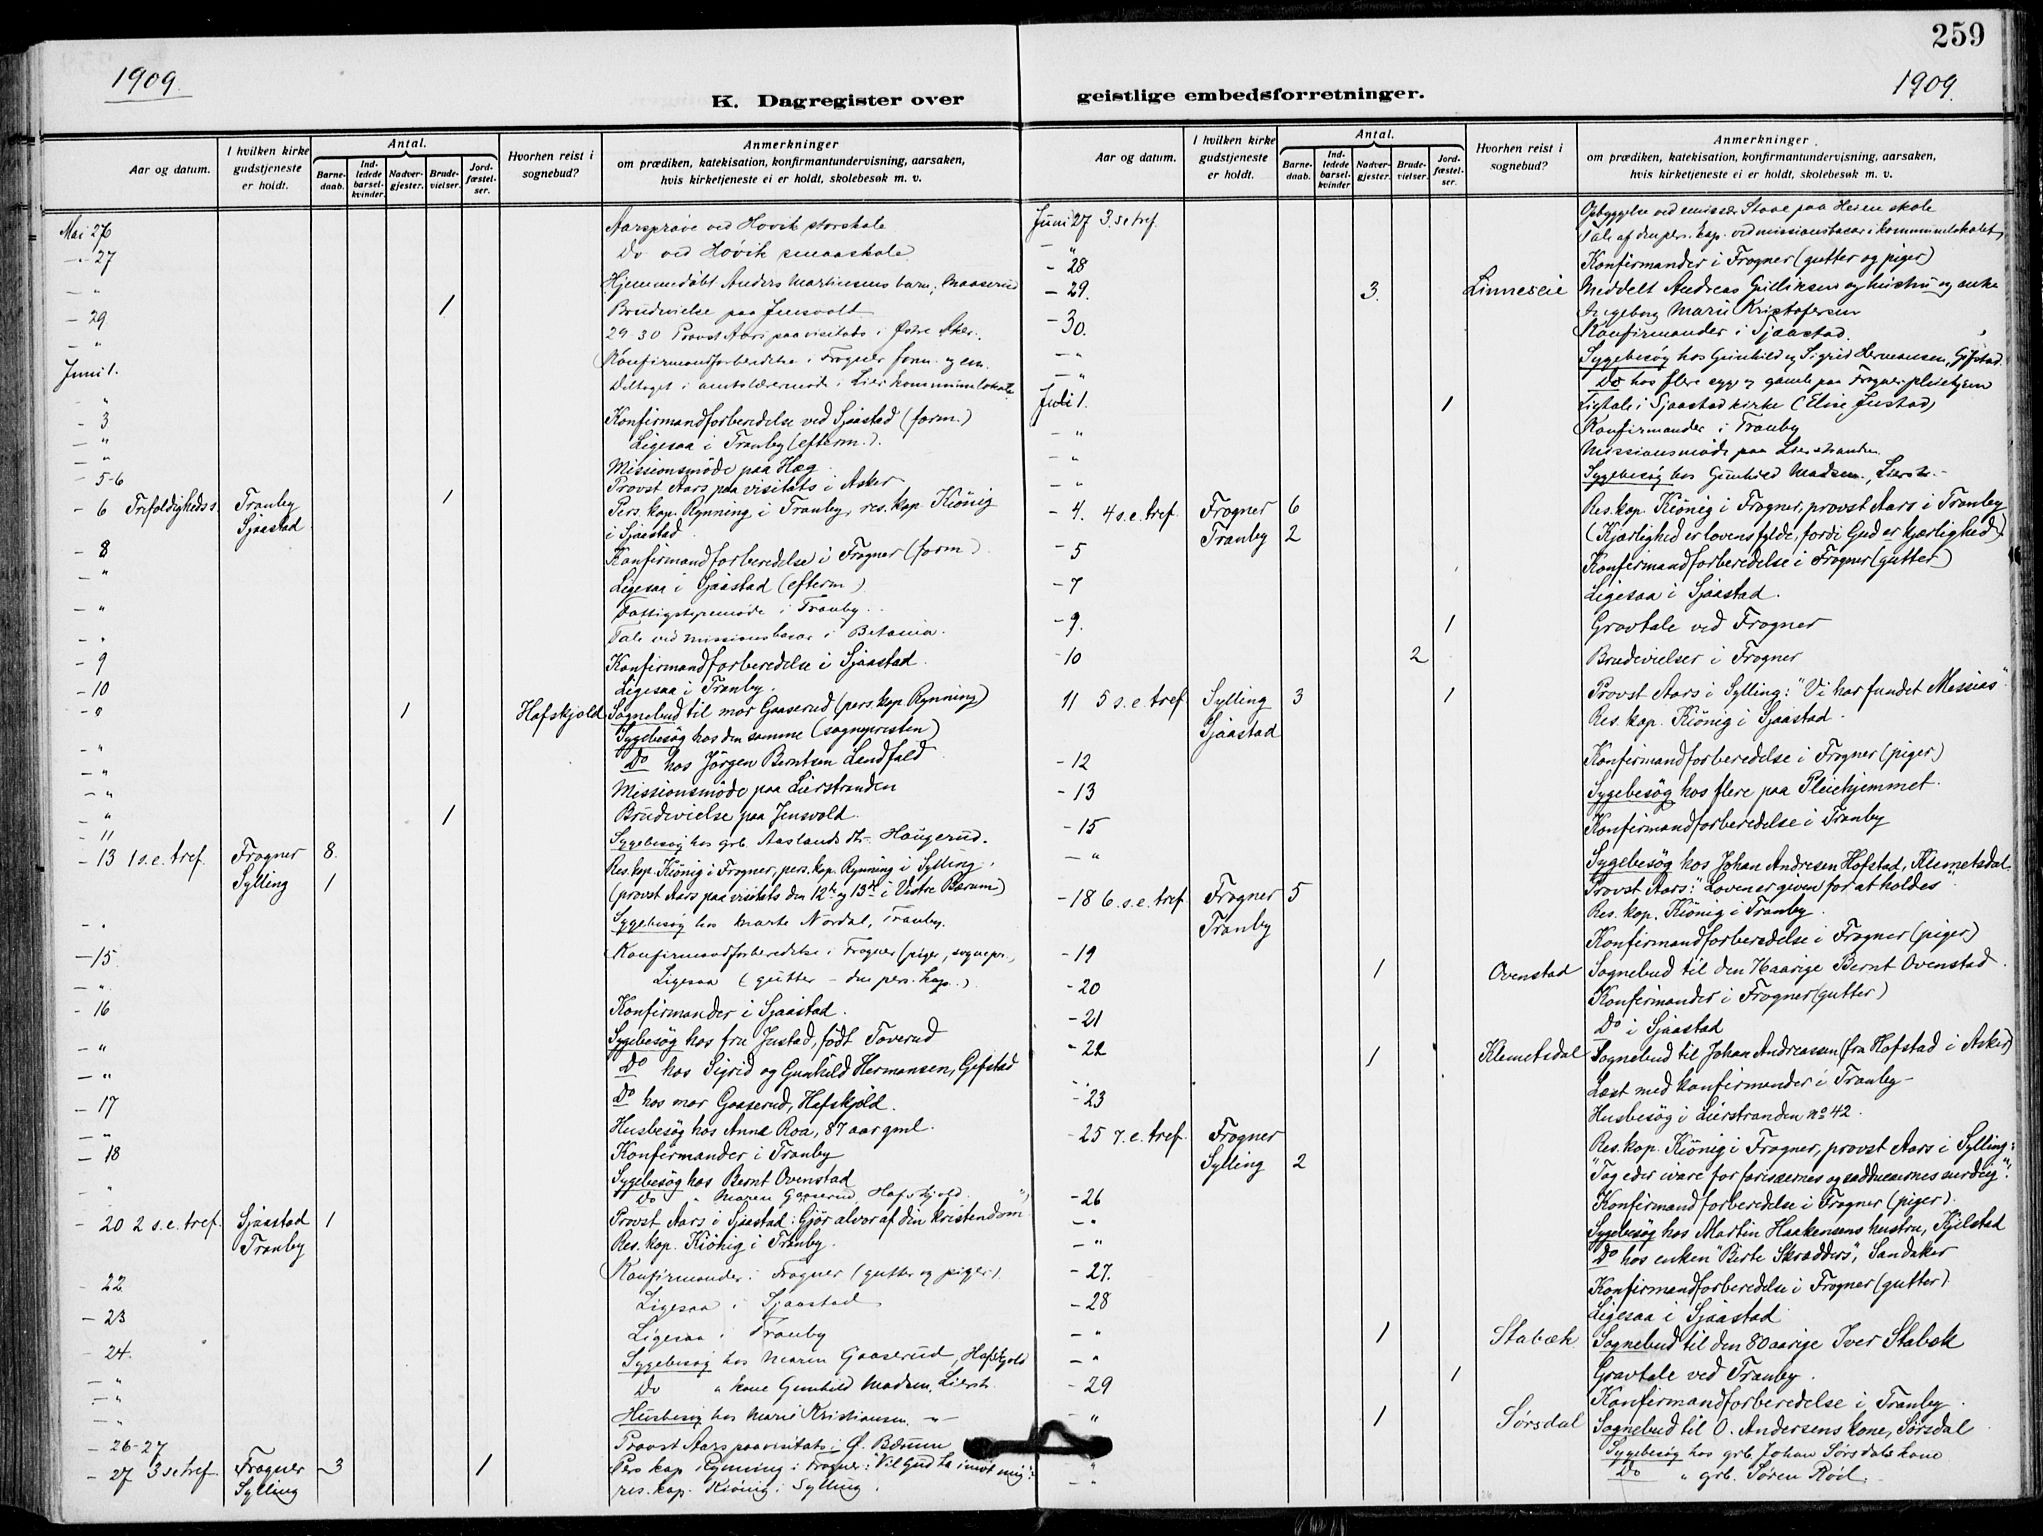 259
1909.
1909.
K. Dagregister over geistlige embedsforretninger.
Aar og datum.
I hvilken kirke gudstjeneste er holdt.
Antal.
Barnedaab.
Indledede barselkvinder.
Nadvergjester.
Brudevielser.
Jordfæstelser.
Hvorhen reist i sognebud?
Anmerkninger
om prædiken, katekisation, konfirmantundervisning, aarsaken,
hvis kirketjeneste ei er holdt, skolebesøk m. v.
Mai 26 Aarsprøve ved Hovik storskole
- " 27 Do ved Høvik smaaskole
- " Hjemmedøbt Anders Martinsens barn, Maaserud
- 29 1 Brudevielse paa Jensvold
- " 29-30 Provst Aars paa visitats i Østre Aker.
Juni 1. Konfirmandforberedelse i Frogner form. og em.
" Deltaget i amtslærermøde i Lier kommunelokale
- 3 Konfirmandforberedelse ved Sjaastad (form.)
- " Ligesaa i Tranby (efterm.).
- " Missionsmøde paa Hæg
- 5-6 Provst Aars paa visitats i Asker
- 6 Trefoldighedss. Tranby 1 Pers. kap. Rynning i Tranby, res. kap. Kiönig
Sjaastad i Sjaastad
- 8 Konfirmandforberedelse i Frogner (form)
- " Ligesaa i Sjaastad (efterm)
- " Fattigstyremøde i Tranby.
- " Tale ved missionsbasar i Betania.
- 9 Konfirmandforberedelse i Sjaastad.
- 10 Ligesaa i Tranby.
- " 1 Hafskjold Sognebud til mor Gaaserud (pers. kap. Rynning)
- " Sygebesøg hos den samme (sognepresten)
- " Do hos Jørgen Berntsen Landfald
- " Missionsmøde paa Lierstranden
- " 1 Brudevielse paa Jensvold.
- 11 Sygebesøg hos grb. Aaslands dtr. Haugerud.
- 13 1 s.e. tref. Frogner 8. Res. kap. Kiönig i Frogner, pers. kap. Rynning i Sylling.
Sylling 1 (provst Aars paa visitats den 12te og 13de i Vestre Bærum)
- " Sygebesøg hos Marte Nordal, Tranby.
- 15 Konfirmandforberedelse i Frogner (piger, sognepr.,
- " Ligesaa (gutter - den pers. kap.)
- 16 Konfirmander i Sjaastad.
- " Sygebesøg hos fru Justad, født Toverud
- " Do hos Sigrid og Gunhild Hermansen, Gifstad
- 17 Do hos mor Gaaserud, Hafskjold.
- " Husbesøg hos Anne Roa, 87 aar gml.
- 18 Konfirmander i Tranby
Sygebesøg hos Bernt Ovenstad
- " Do " Maren Gaaserud, Hafskjold
- 20 2 s.e. tref. Sjaastad 1 Provst Aars i Sjaastad: Gjør alvor af din kristendom"
Tranby Res. kap. Kiönig i Tranby.
- 22 Konfirmander i Frogner (gutter og piger).
- 23 Ligesaa i Sjaastad
- 24. Ligesaa i Tranby
- " Sygebesøg hos Maren Gaaserud, Hafskjold
- " Do " kone Gunhild Madsen, Lierstr.
- " Husbesøg hos Marie Kristiansen, - " -
- 26-27 Provst Aars paa visitats i Ø. Bærum
- 27 3 s e tref. Frogner 3 1 Pers. kap. Rynning i Frogner: "Vil Gud ta imot mig".
Sylling res. kap. Kiönig i Sylling.
Aar og datum.
I hvilken kirke gudstjeneste er holdt.
Antal.
Barnedaab.
Indledede barselkvinder
Nadvergjester.
Brudevielser.
Jordfæstelser.
Hvorhen reist i sognebud?
Anmerkninger
om prædiken, katekisation, konfirmantundervisning, aarsaken,
hvis kirketjeneste ei er holdt, skolebesøk m. v.
Juni 27 3 s e tref. Opbyggelse ved emissær Staae paa Heien skole
- " Tale af den pers. kap. ved missionsbasar i kommunelokalet
- 28 Konfirmander i Frogner (gutter og piger)
- 29. 3. Linneseie Meddelt Andreas Gulliksen og hustru og enke
- 30. Ingeborg Marie Kristofersen
Konfirmander i Sjaastad.
- " Sygebesøg hos Gunhild og Sigrid Hermansen, Gifstad.
- " Do hos flere syge og gamle paa Frogner pleiehjem
Juli 1. 1 Ligtale i Sjaastad kirke (Elise Justad)
- " Konfirmander i Tranby
- " Missionsmøde paa Lierstranden
- " Sygebesøg hos Gunhild Madsen, Lierstr. -
- 4. 4 s.e. tref. Frogner 6 Res. kap. Kiönig i Frogner, provst Aars i Tranby
Tranby 2 (Kjærlighed er lovens fylde, fordi Gud er kjærlighed)
- 5 Konfirmandforberedelse i Frogner (gutter)
- 7 Ligesaa i Sjaastad.
- 9. 1 Gravtale ved Frogner
- 10 2 Brudevielser i Frogner
11 5 s.e. tref Sylling 3 1 Provst Aars i Sylling: "Vi har fundet Messias"
Sjaastad Res. kap. Kiönig i Sjaastad.
- 12 Konfirmandforberedelse i Frogner (piger)
- 13 Sygebesøg hos flere paa Pleiehjemmet.
- 15 Konfirmandforberedelse i Tranby
- " Sygebesøg hos Johan Andresen Hofstad, Klemetsdal
- 18 6. s.e. tref. Frogner 5 Provst Aars: "Loven er given for at holdes".
Tranby Res. kap. Kiönig i Tranby.
- 19 Konfirmandforberedelse i Frogner (piger)
1 Ovenstad Sognebud til den 76aarige Bernt Ovenstad.
- 20 Konfirmander i Frogner (gutter)
- 21 Do i Sjaastad
- 22 1 Klemetsdal Sognebud til Johan Andreassen (fra Hofstad i Asker)
Læst med konfirmander i Tranby -
- 23 Husbesøg i Lierstranden no 42.
- 25 7. e. tref. Frogner Res. kap. Kiönig i Frogner, provst Aars i Sylling:
Sylling 2 "Tag eder ivare for farisæernes og sadducæernes surdeig".
- 26 Konfirmandforberedelse i Frogner (piger).
- " Sygebesøg hos Martin Haakensens hustru, Kjelstad
- " Do hos enken "Berte Skrædders", Sandaker
- 27. Konfirmandforberedelse i Frogner (gutter)
- 28 Ligesaa i Sjaastad
- " 1 Stabæk Sognebud til den 80 aarige Iver Stabæk
- " 1 Gravtale ved Tranby.
- 29 Konfirmandforberedelse i Tranby.
" 1 Sørsdal Sognebud til O. Andersens kone, Sørsdal
- " Sygebesøg hos grb. Johan Sørsdals kone
- " Do " grb. Søren Röil.